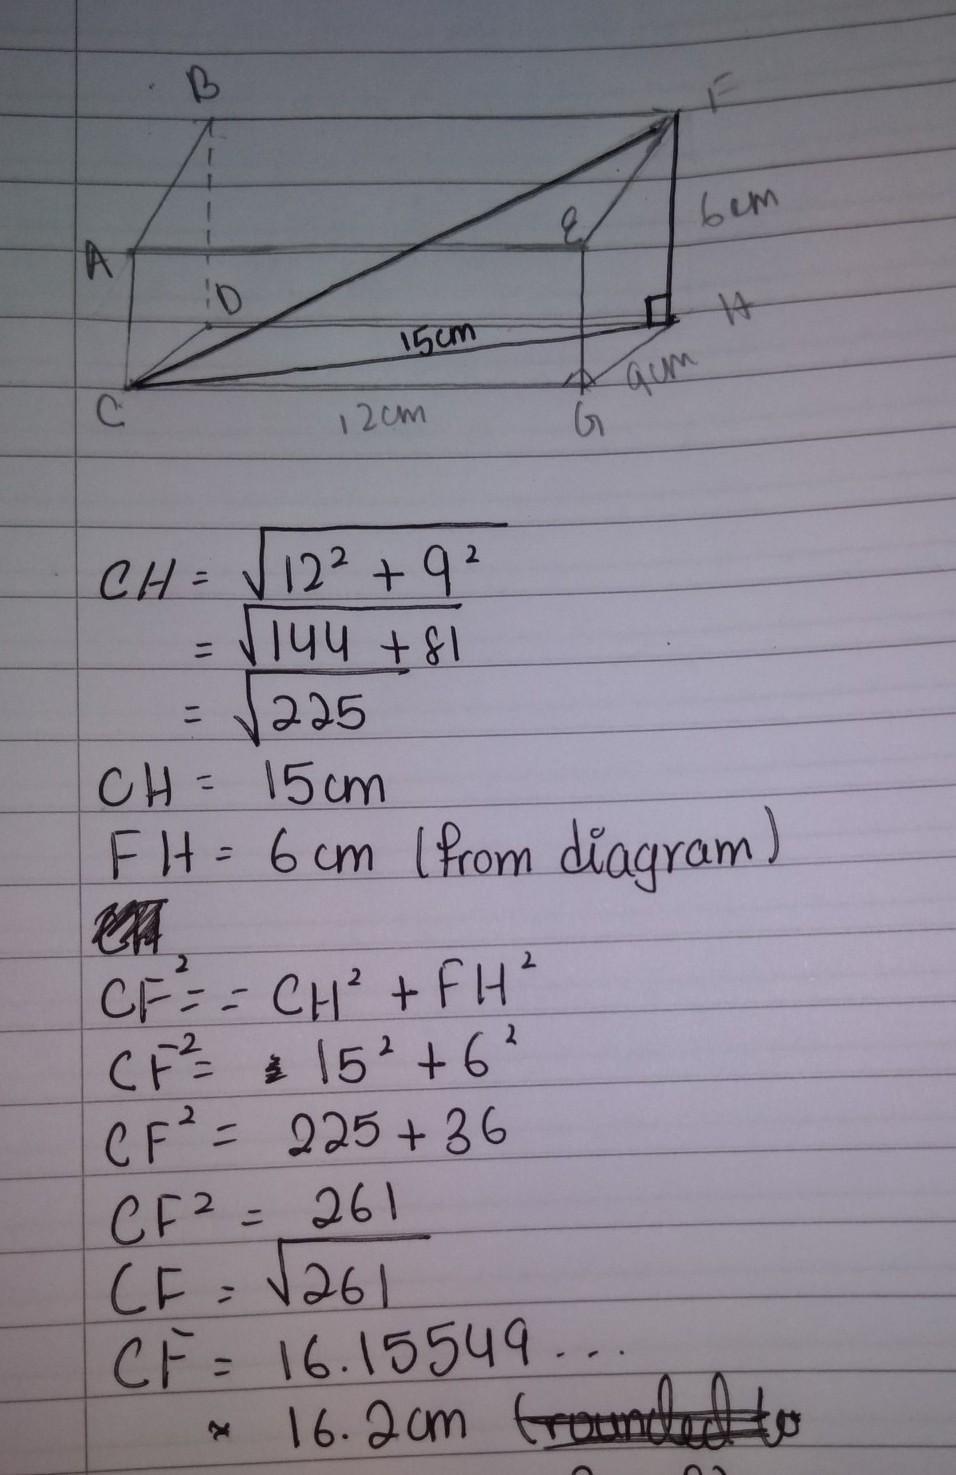 B
F
A
E
6cm
D
H
15cm
9cm
C
12cm
G
CH = √12² + 9²
= √144 + 81
= √225
CH = 15cm
FH = 6cm (from diagram)
CF² = = CH² + FH²
CF² = 15² + 6²
CF² = 225 + 36
CF² = 261
CF = √261
CF = 16.15549...
≈ 16.2cm (rounded to